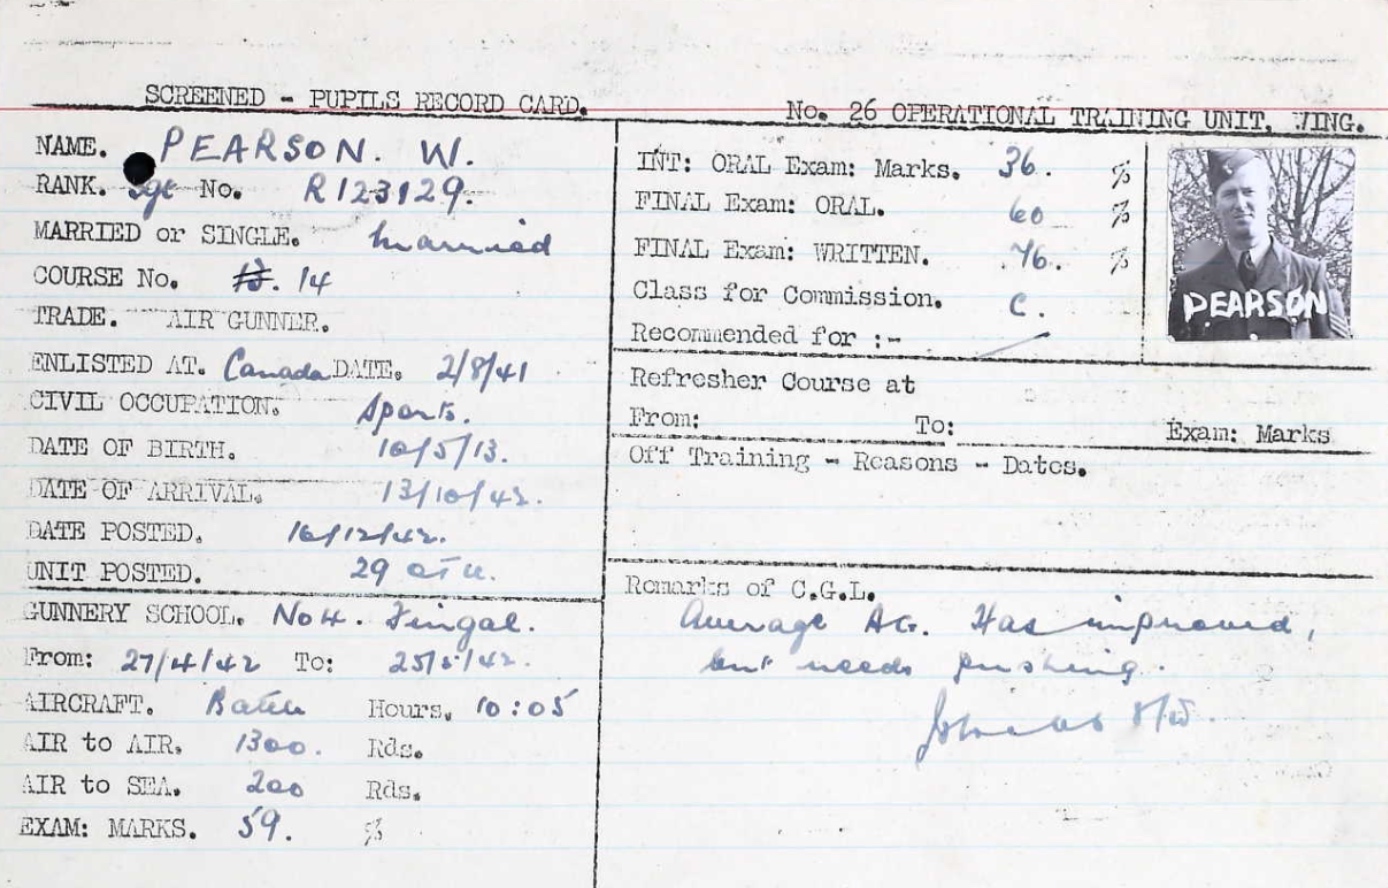 SCREENED - PUPILS RECORD CARD.
No. 26 OPERATIONAL TRAINING UNIT, WING.
NAME. PEARSON. W.
RANK. Sgt No. R123129.
MARRIED or SINGLE. married
COURSE No. 13. 14
TRADE. AIR GUNNER.
ENLISTED AT. Canada DATE. 2/8/41
CIVIL OCCUPATION. Sports.
DATE OF BIRTH. 10/5/13.
DATE OF ARRIVAL. 13/10/42.
DATE POSTED. 16/12/42.
UNIT POSTED. 29 OTU.
GUNNERY SCHOOL. No 4. Fingal.
From: 27/4/42 To: 25/5/42.
AIRCRAFT. Battle Hours. 10:05
AIR to AIR. 1300. Rds.
AIR to SEA. 200 Rds.
EXAM: MARKS. 59. %
INT: ORAL Exam: Marks. 36. %
FINAL Exam: ORAL. 60 %
FINAL Exam: WRITTEN. 76. %
Class for Commission. C.
Recommended for :-
PEARSON
Refresher Course at
From: To: Exam: Marks
Off Training - Reasons - Dates.
Remarks of C.G.L.
Average AG. Has improved,
but needs pushing.